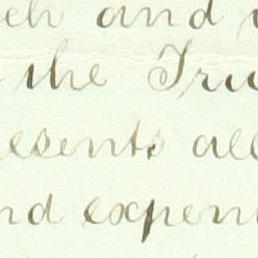 and
the Tru
esents all
nd expen